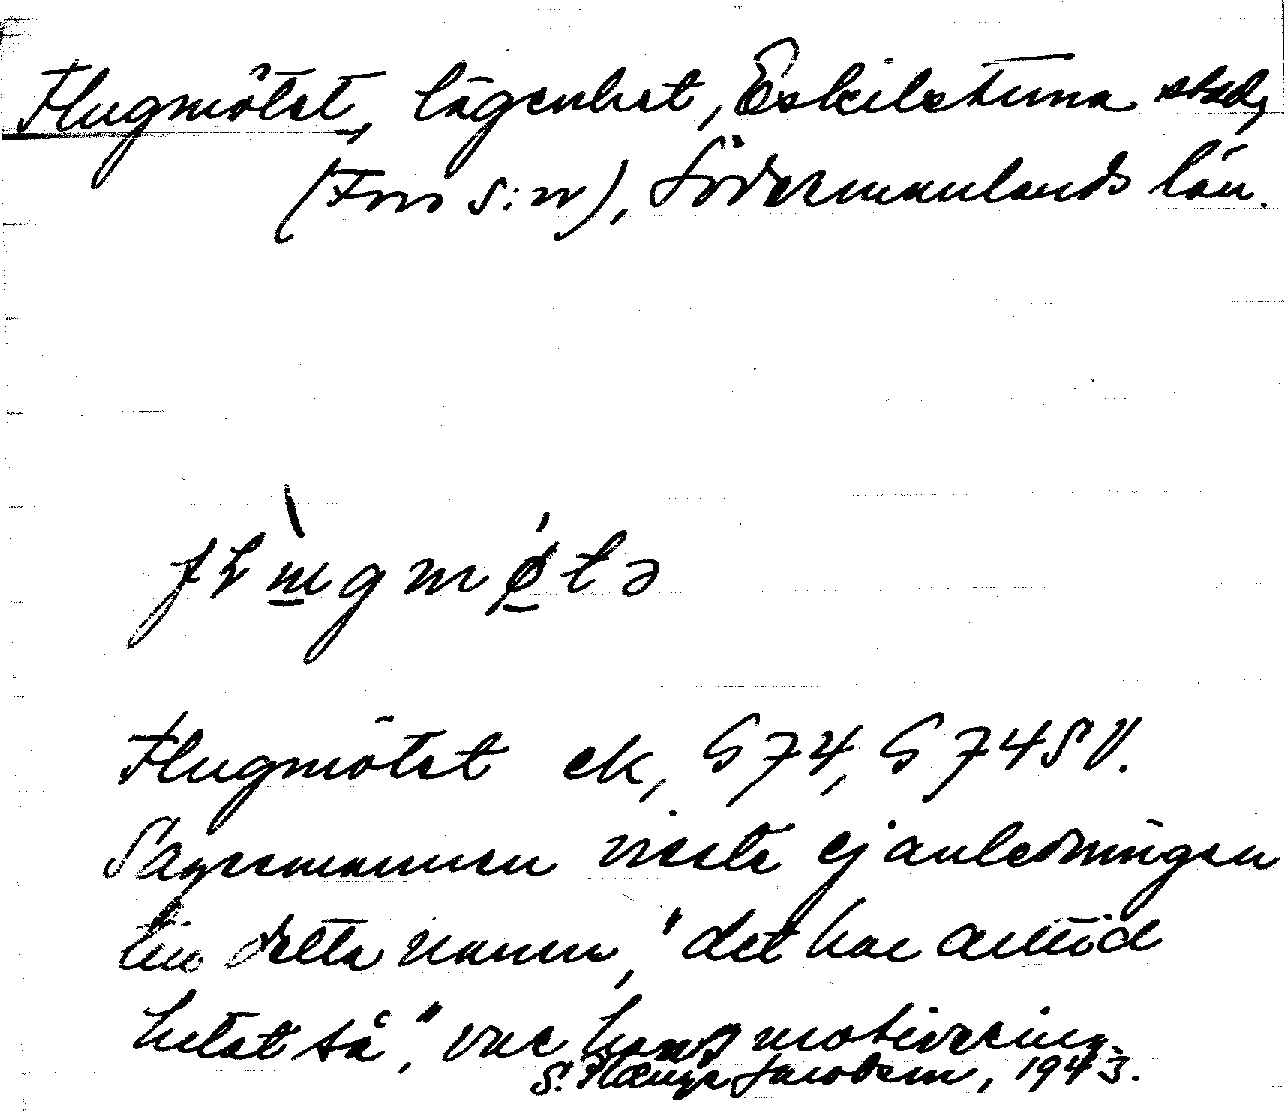 Flugmötet, lägenhet, Eskilstuna stad,
(Fors s:n), Södermanlands län.
Flugmötet ek, G 74, G 74 SV.
Sagesmannen visste ej anledningen
till detta namn, "det har alltid
hetat så", var hans motivering.
S. Jacobsen, 1943.